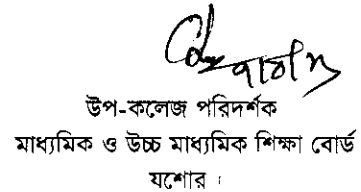 উপ-কলেজ পরিদর্শক
মাধ্যমিক ও উচ্চ মাধ্যমিক শিক্ষা বোর্ড
যশোর।